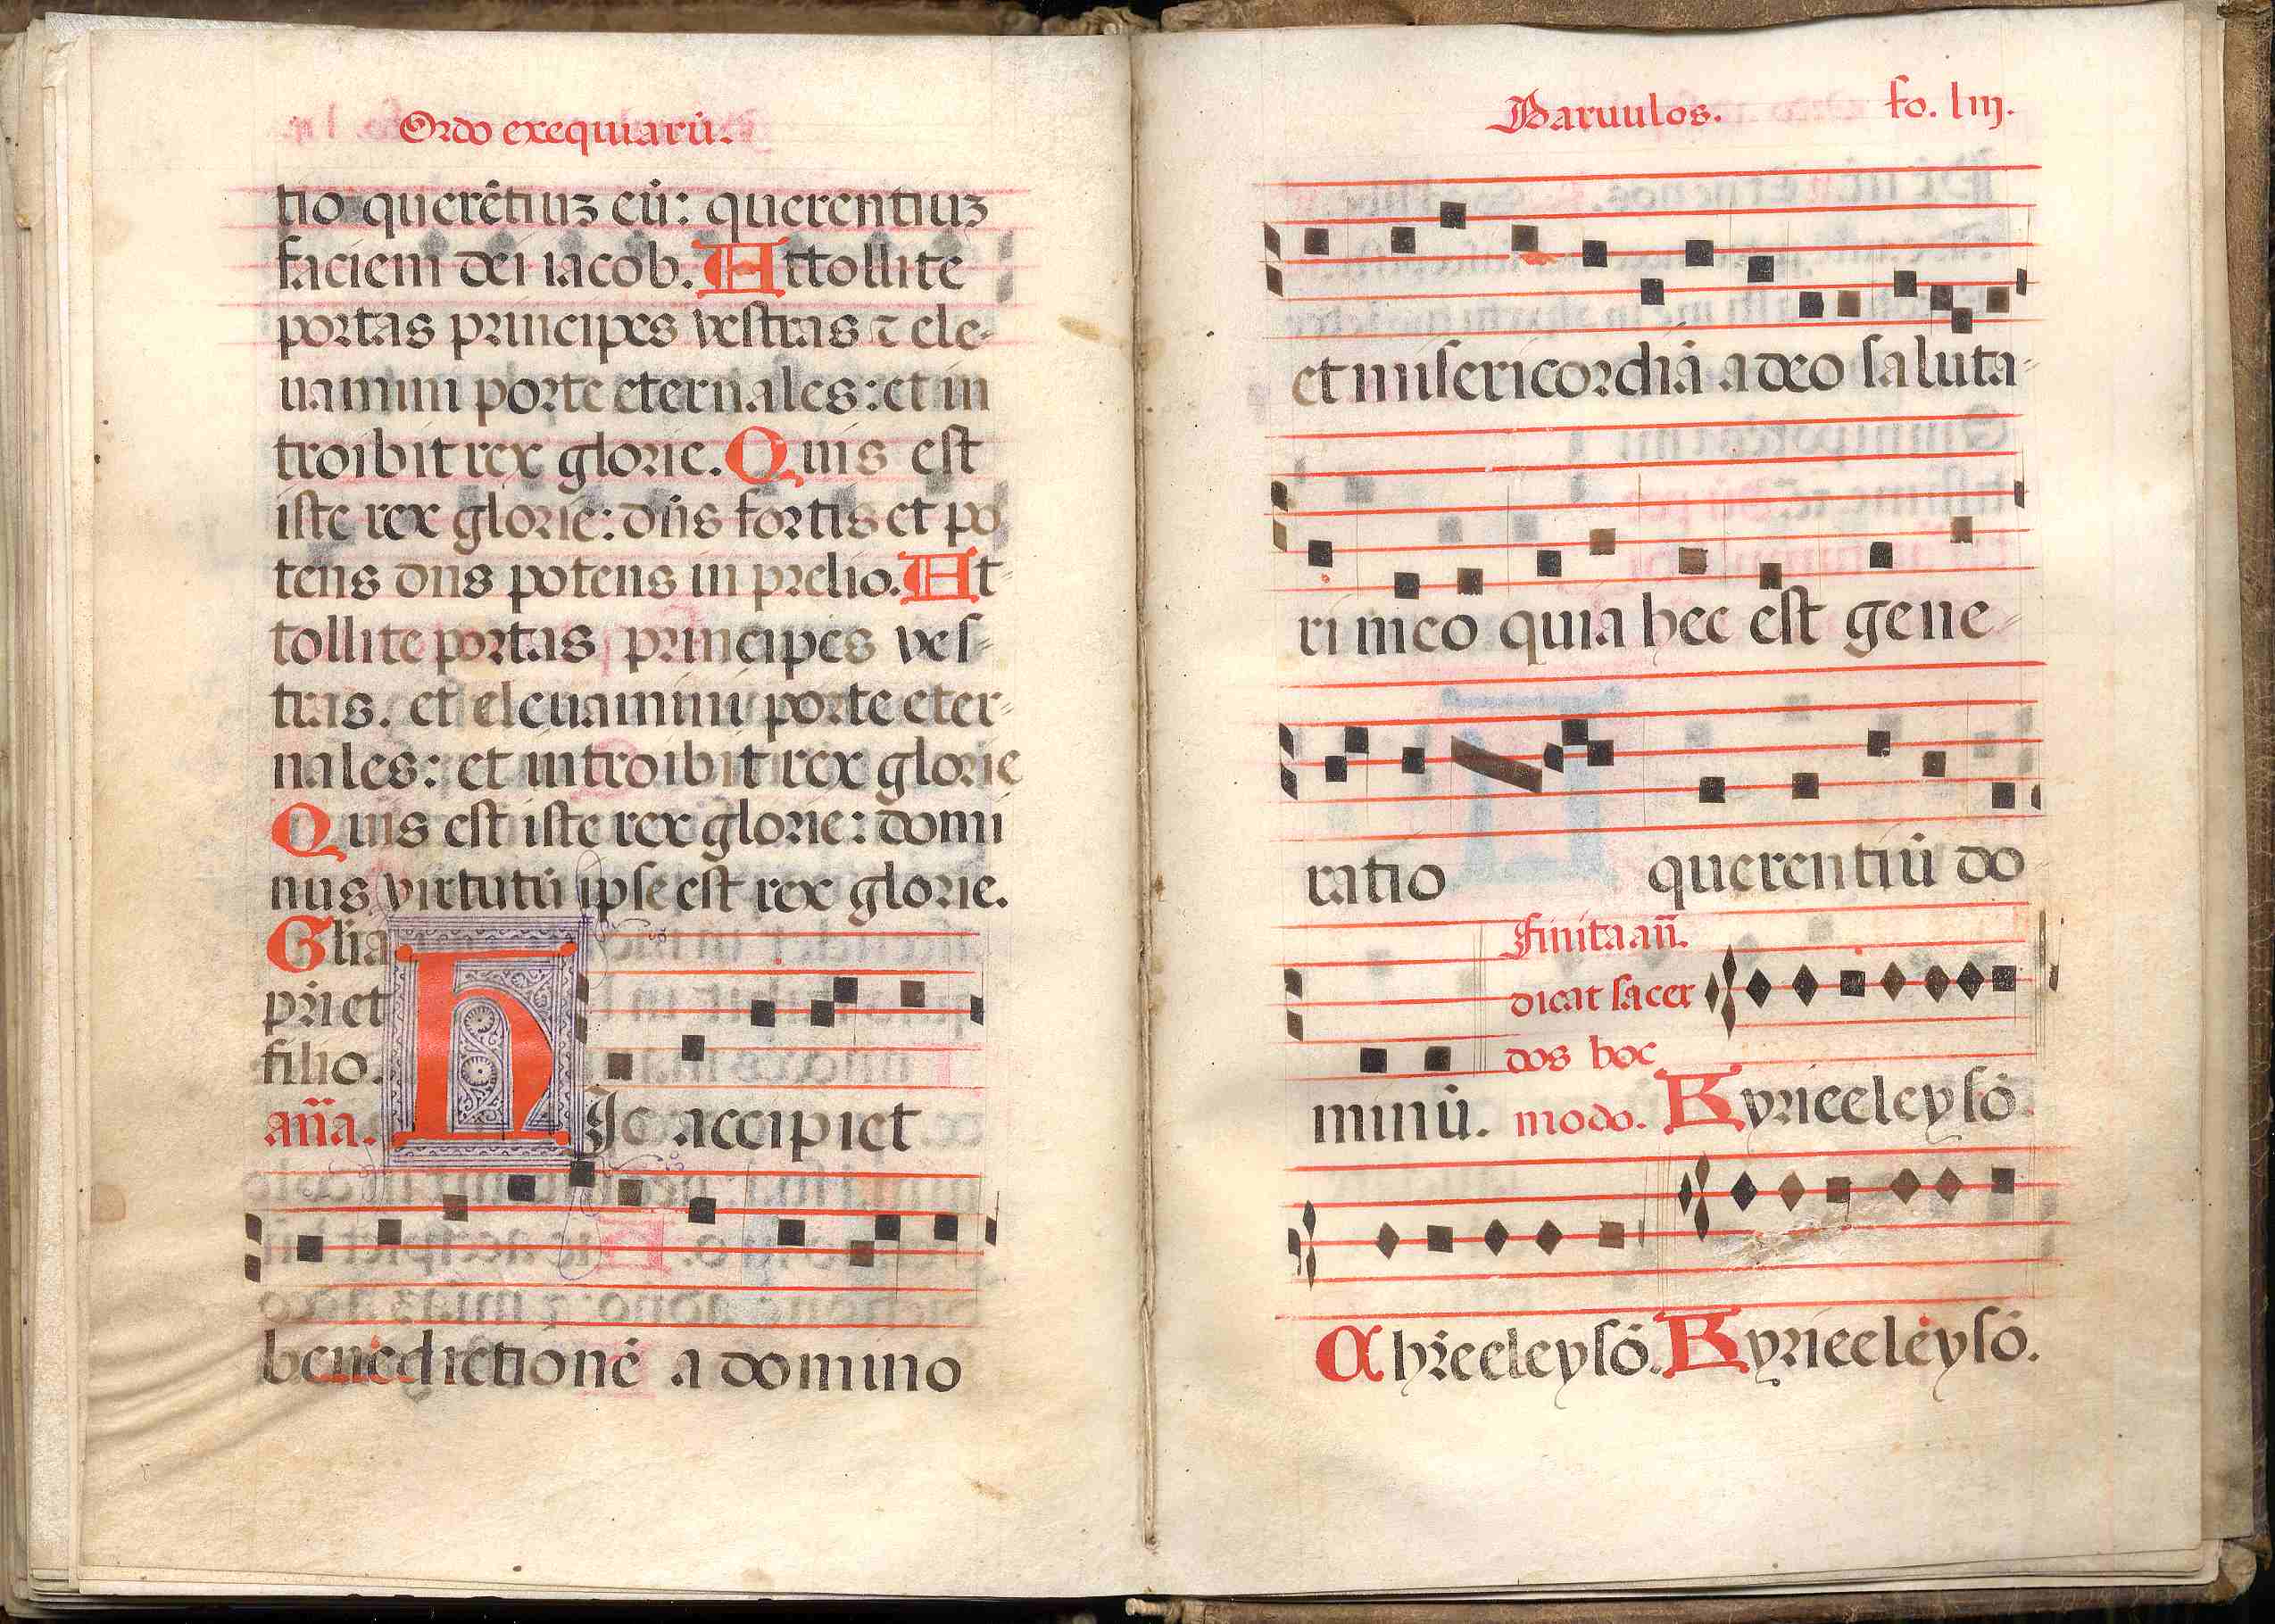 Ordo exequiarū.
tio querētiuꝫ eū: querentiuꝫ
faciem dei iacob. Attollite
portas principes vestras ⁊ ele-
uamini porte eternales: et in
troibit rex glorie. Quis est
iste rex glorie: dn̄s fortis et po
tens dn̄s potens in prelio. At-
tollite portas principes ves-
tras. et eleuamini porte eter-
nales: et introibit rex glorie
Quis est iste rex glorie: domi
nus virtutū ipse est rex glorie.
Glīa
pr̄i et
filio.
an̄a. hIc accipiet
benedictionē a domino
Paruulos. fo. liij.
et misericordiā a deo saluta-
ri meo quia hec est gene-
ratio querentiū do
Finita an̄.
dicat sacer
dos hoc
minū. modo. Kyrieeleysō
Chr̄eeleysō. Kyrieeleysō.